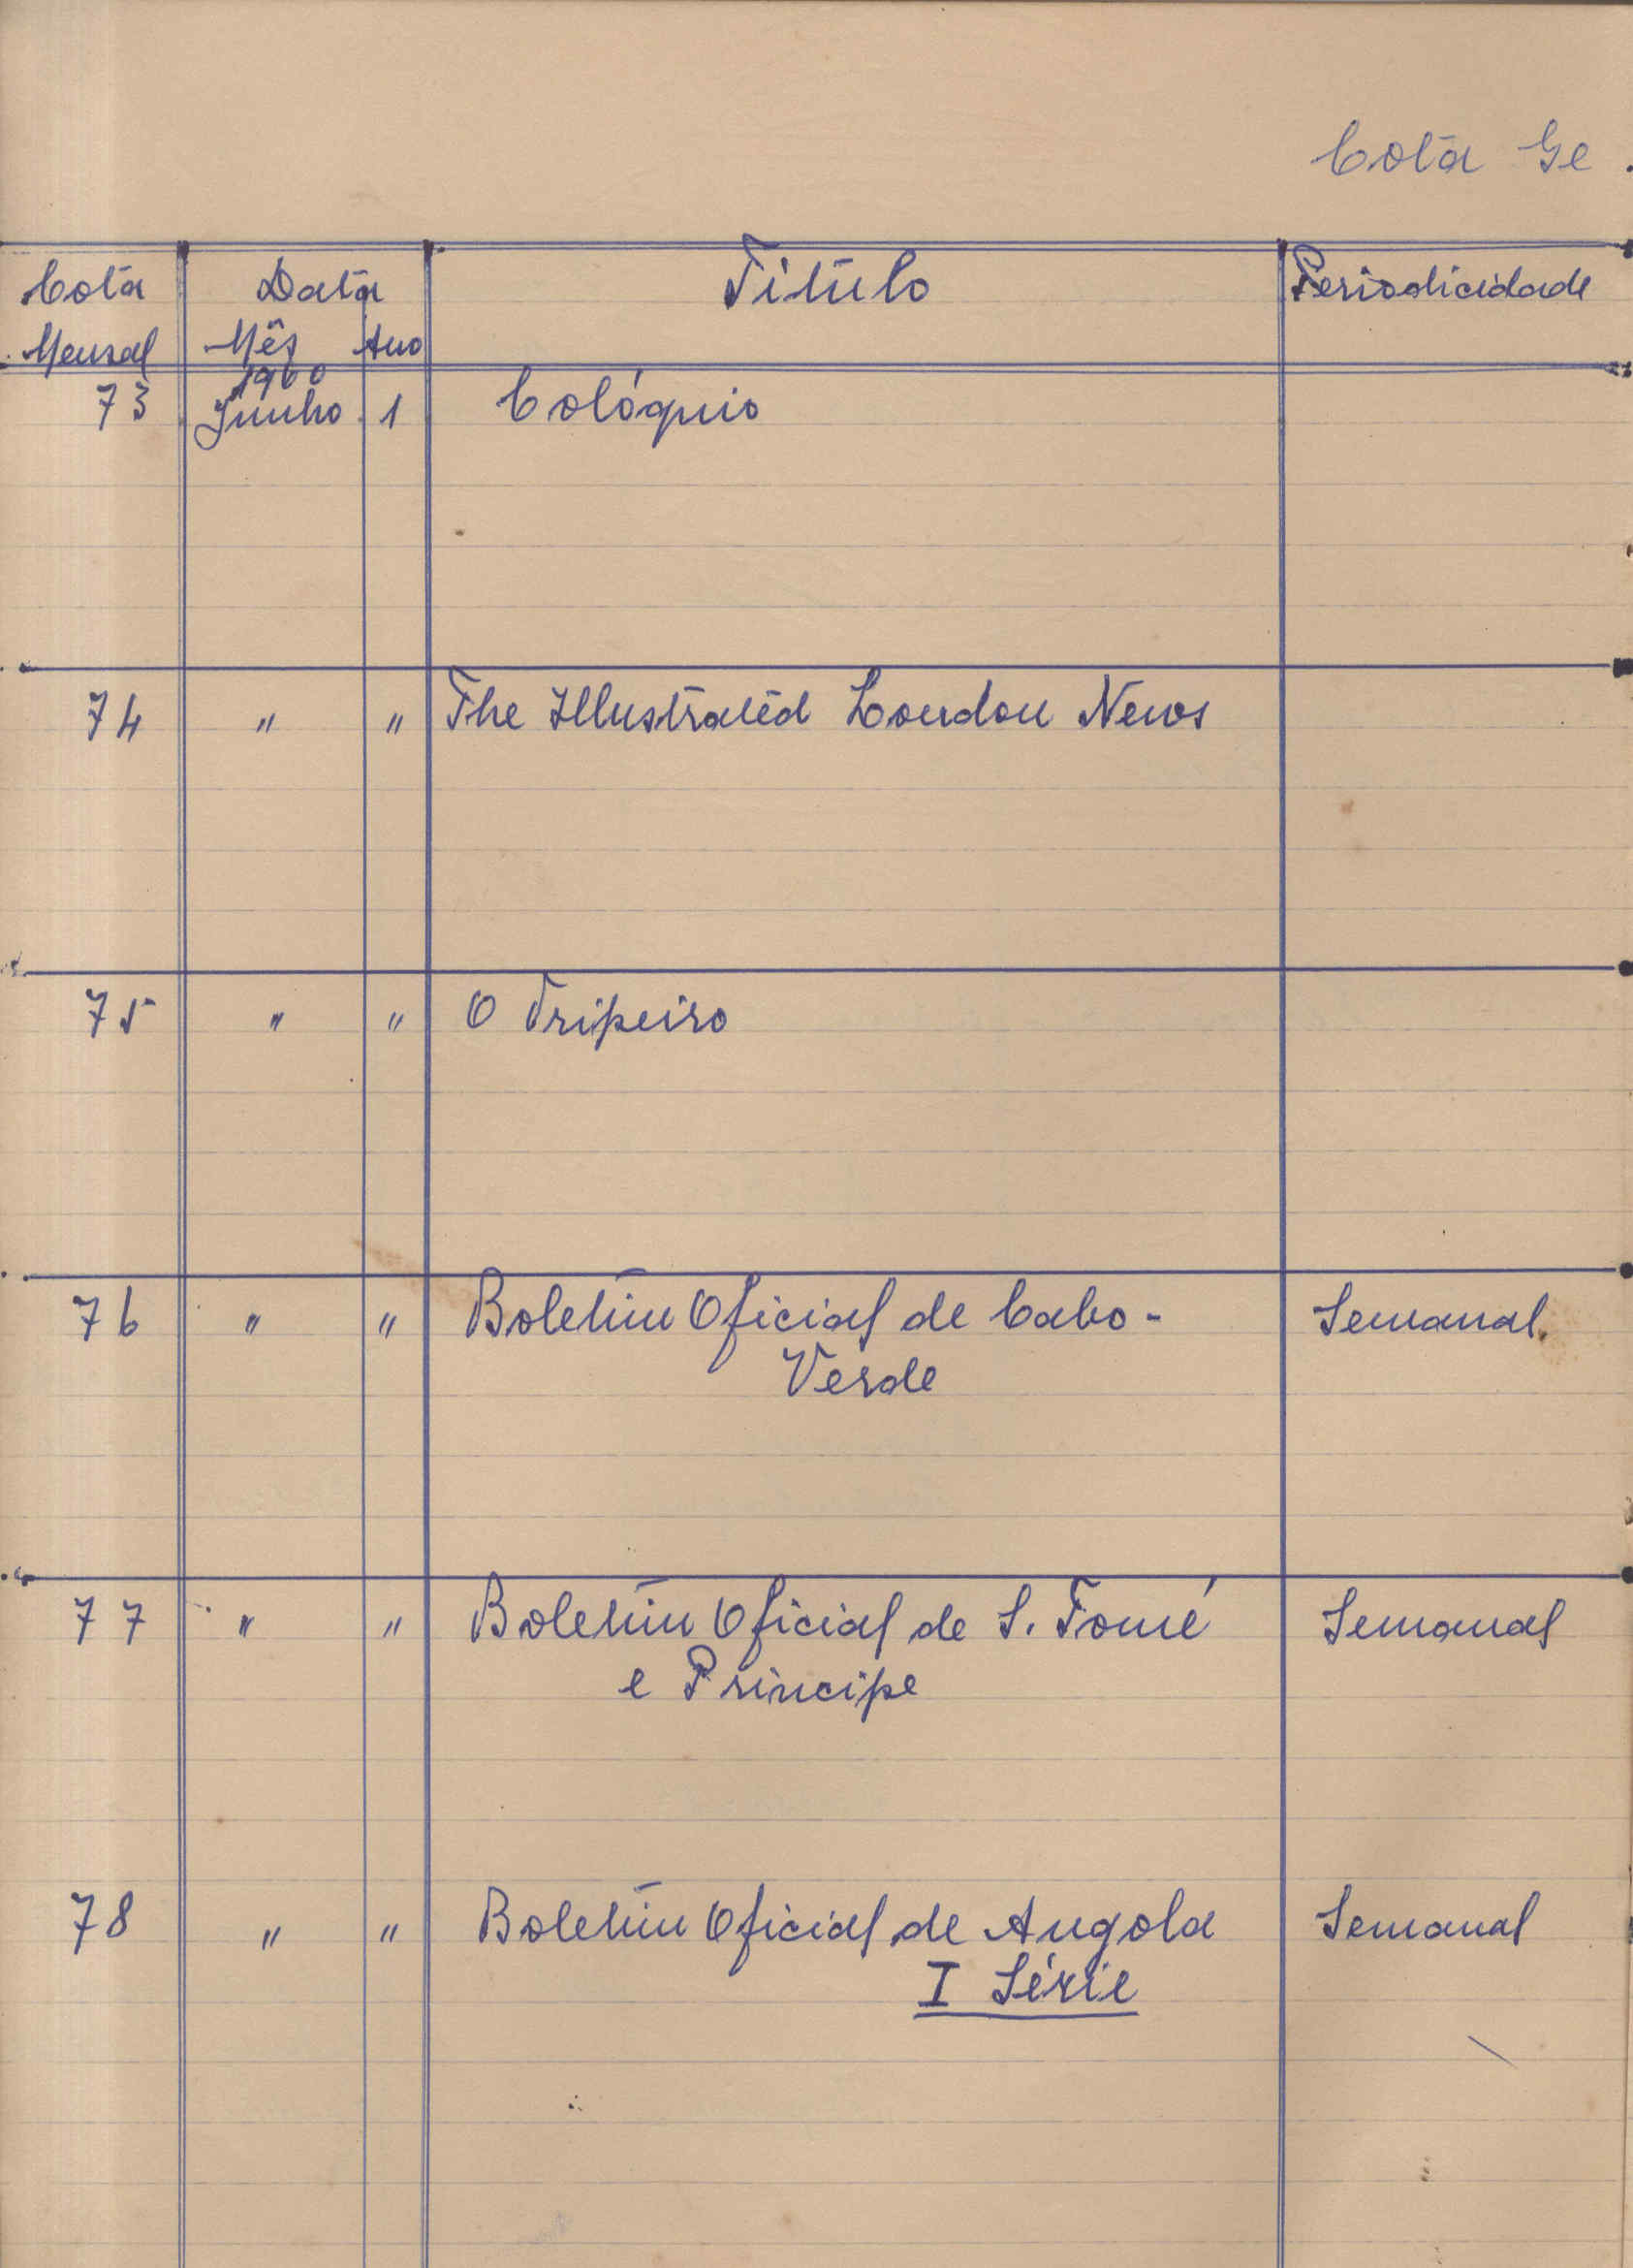 Cota Ge
Cota Data Titulo Periodicidade
Mensal Mês Ano
1960
73 Junho 1 Colóquio
74 " " The Illustrated London News
75 " " O Tripeiro
76 " " Boletim Oficial de Cabo- Semanal.
Verde
77 " " Boletim Oficial de S. Tomé Semanal
e Principe
78 " " Boletim Oficial de Angola Semanal
I Série